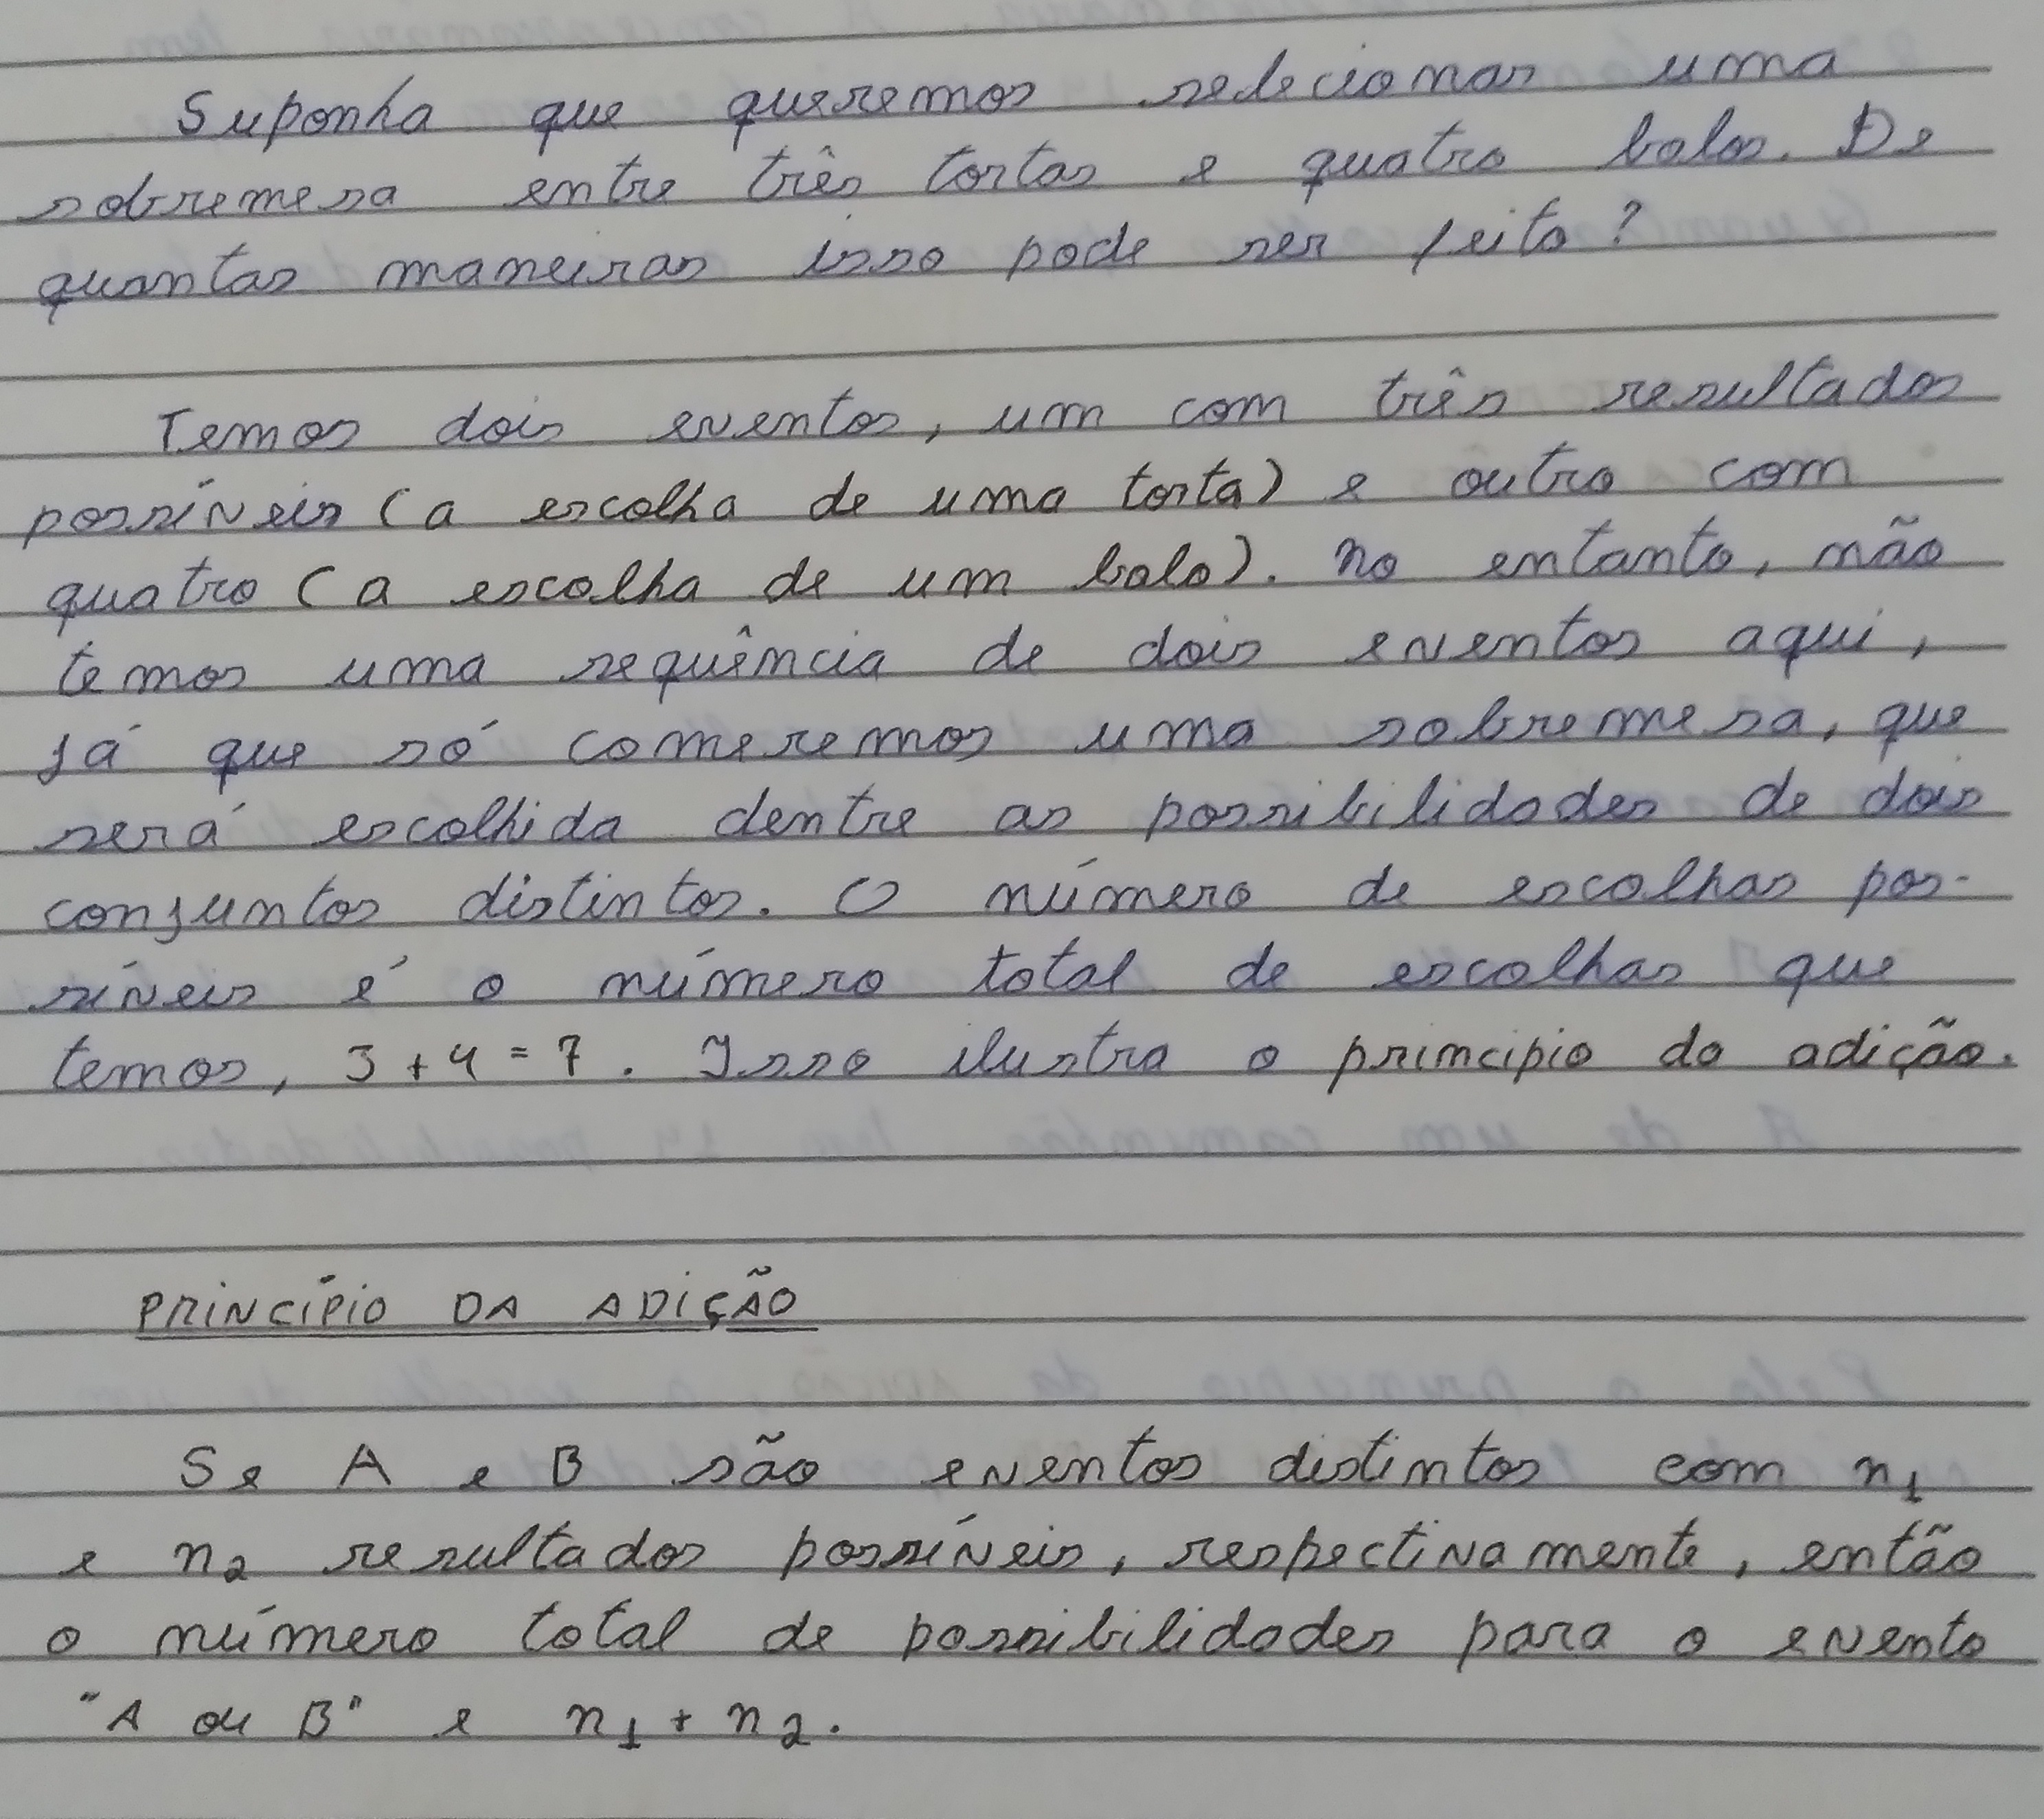 Suponha que queremos selecionar uma
sobremesa entre três tortas e quatro bolos. De
quantas maneiras isso pode ser feito?
Temos dois eventos, um com três resultados
possíveis (a escolha de uma torta) e outro com
quatro (a escolha de um bolo). No entanto, não
temos uma sequência de dois eventos aqui,
já que só comeremos uma sobremesa, que
será escolhida dentre as possibilidades de dois
conjuntos distintos. O número de escolhas pos-
síveis é o número total de escolhas que
temos, 3 + 4 = 7. Isso ilustra o principio da adição.
PRINCÍPIO DA ADIÇÃO
Se A e B são eventos distintos com n₁
e n₂ resultados possíveis, respectivamente, então
o número total de possibilidades para o evento
"A ou B" e n₁ + n₂.